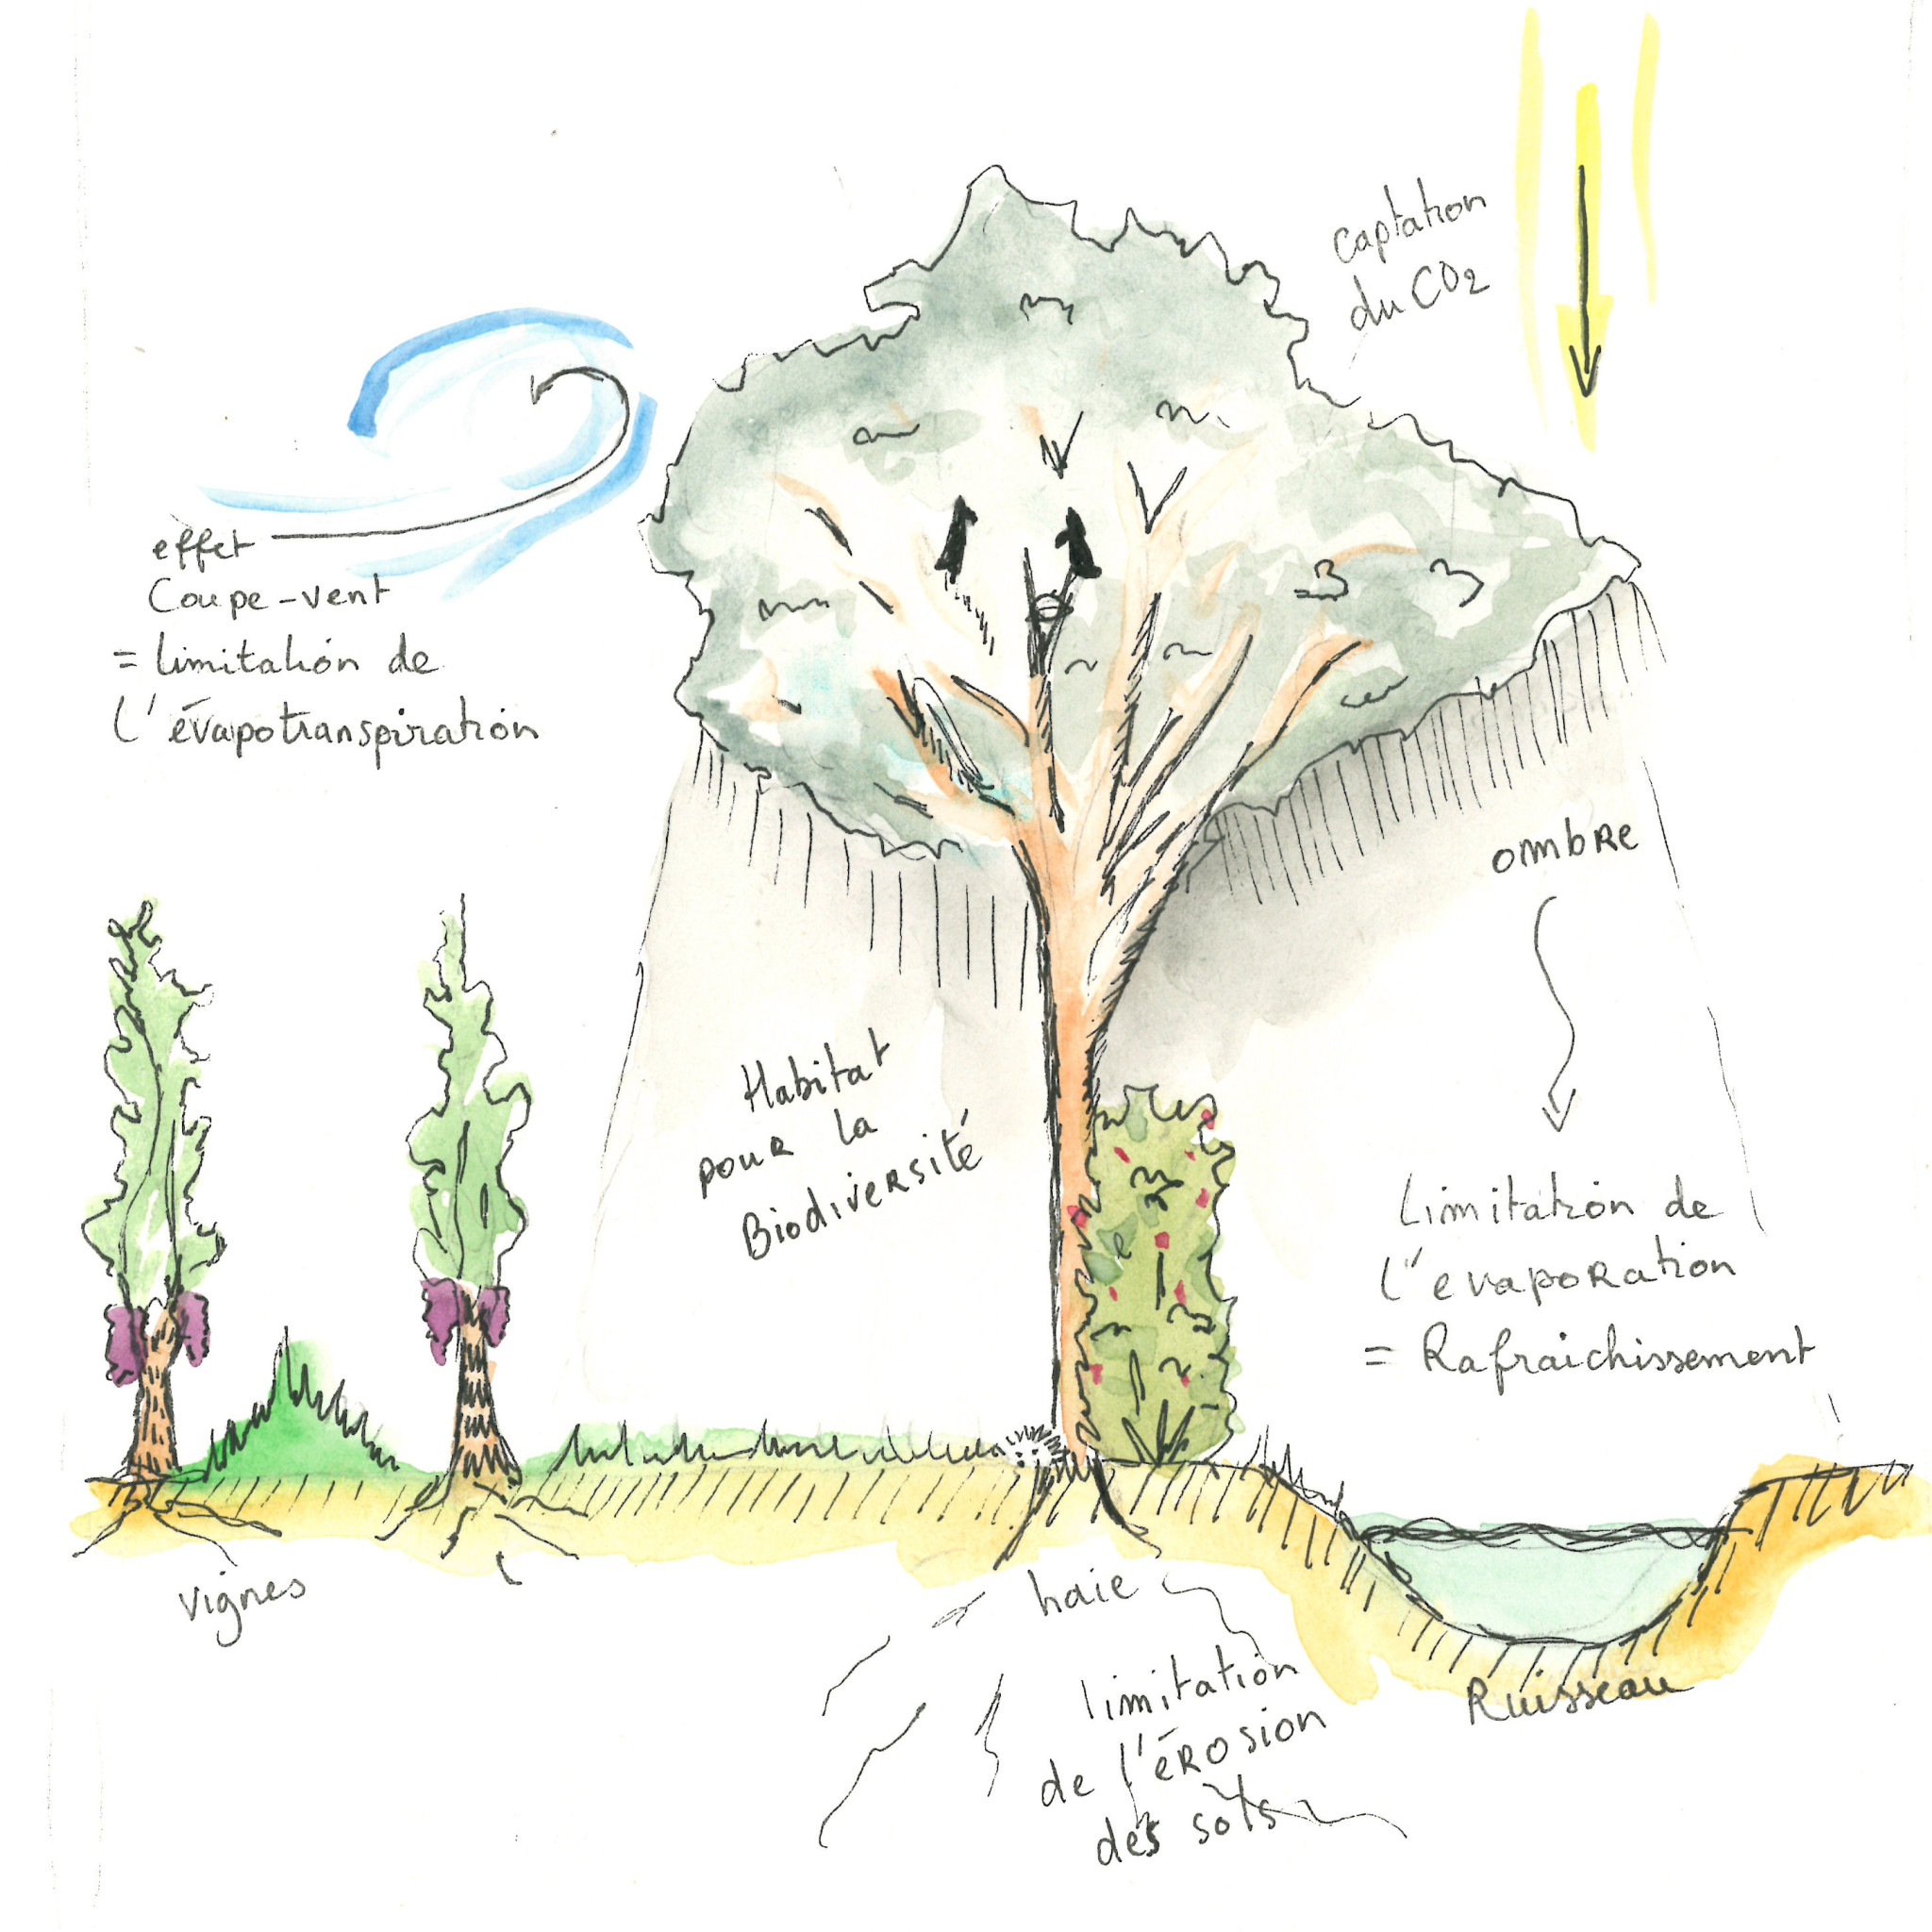 captation
du CO2
effet
Coupe-vent
= limitation de
l'évapotranspiration
ombre
Habitat
pour la
Biodiversité
Limitation de
l'evaporation
= Rafraichissement
vignes
haie
Ruisseau
limitation
de l'érosion
des sols